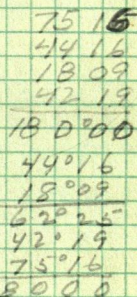 75 16
44 16
18 09
42 19
180°00
44°16
18°09
62°25
42°19
75°16
8000